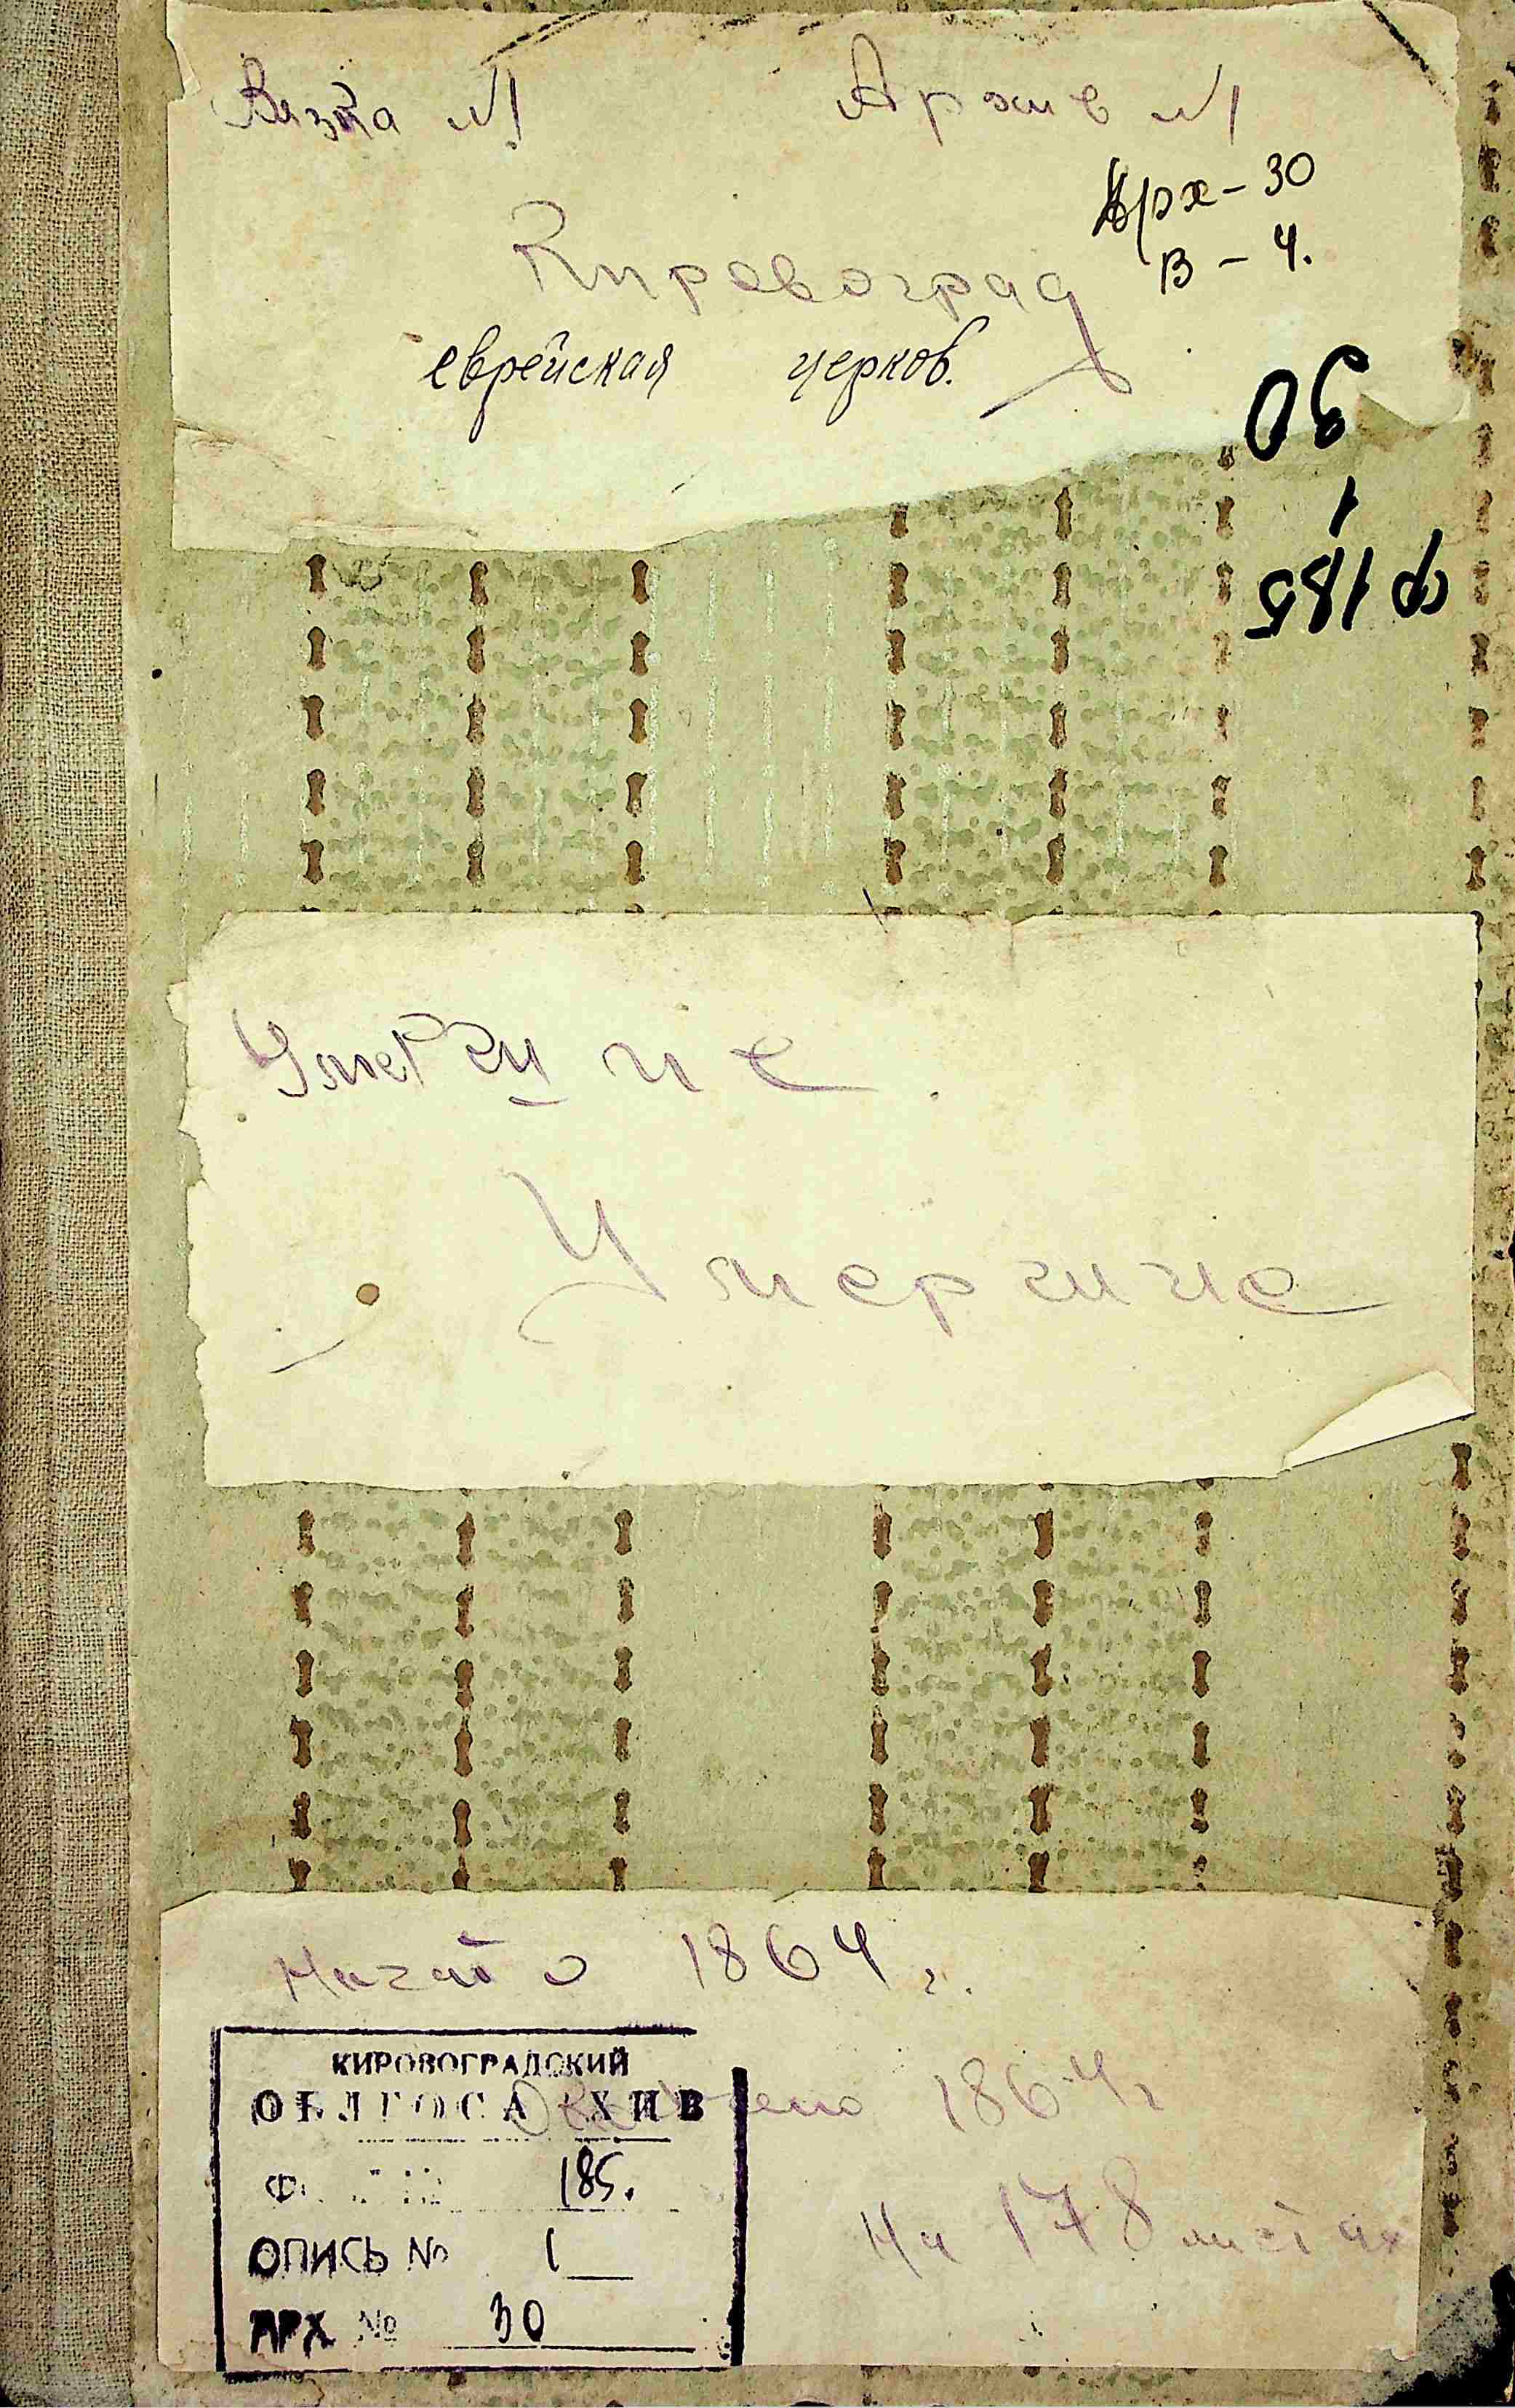 Вязка №
Архив №
Арх - 30
В - 4.
Кировоград
еврейская церков.
30
1
ф 185
Умершие
Умершие
Начато 1864 г.
КИРОВОГРАДСКИЙ
ОБЛГОСАРХИВ
Окончено 1864 г
Ф. 185.
ОПИСЬ № 1
АРХ № 30
На 178 листах